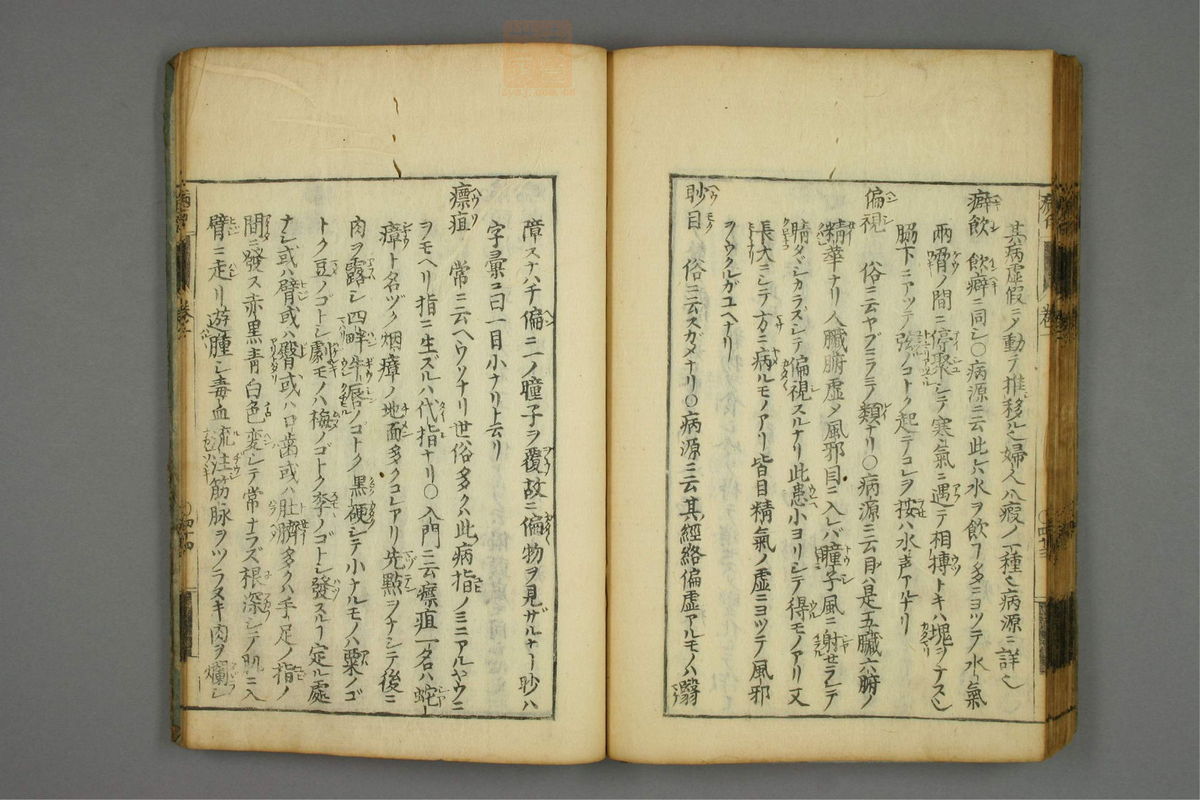 其病虚假ニノ動テ推移ル也婦人八瘕ノ一種也病源ニ詳也
癖飲 飲癖ニ同シ〇病源ニ云此ハ水ヲ飲フ多ニヨツテ水氣
両脇ノ間ニ停聚シテ寒氣ニ遇テ相搏トキハ塊ヲナス也
脇下ニアツテ弦ノコトク起テコレヲ按ハ水声アルナリ
偏視 俗ニ云ヤブニラミノ類ナリ〇病源ニ云目ハ是五臓六腑ノ
精華ナリ人臓腑虚メ風邪目ニ入レバ瞳子風ニ射セラレテ
睛タヾシカラズシテ偏視スルナリ此患小ヨリシテ得モノアリ又
長大ニシテ方ニ病ルモノアリ皆目精氣ノ虚ニヨツテ風邪
ヲウクルガユヘナリ
眇目 俗ニ云スガメナリ〇病源ニ云其經絡偏虚アルモノハ翳
障スナハチ偏ニ一ノ瞳子ヲ覆故ニ偏物ヲ見ザルナリ眇ハ
字彙ニ曰一目小ナリト云リ
瘭疽 常ニ云ヘウソナリ世俗多クハ此病指ノミニアルヤウニ
ヲモヘリ指ニ生ズルハ代指ナリ〇入門ニ云瘭疽一名ハ蛇
瘴ト名ヅク烟瘴ノ地面多クコレアリ先點ヲナシテ後ニ
肉ヲ露シ四畔牛唇ノゴトク黒硬シテ小ナルモノハ粟ノゴ
トク豆ノゴトシ劇モノハ梅ノゴトク李ノゴトシ發スルフ定ル處
ナシ或ハ臂或ハ臀或ハ口歯或ハ肚臍多クハ手足ノ指ノ
間ニ發ス赤黒青白色変シテ常ナラズ根深シテ肌ニ入
臂ニ走リ遊腫シ毒血流注筋脉ヲツラヌキ肉ヲ爛シ